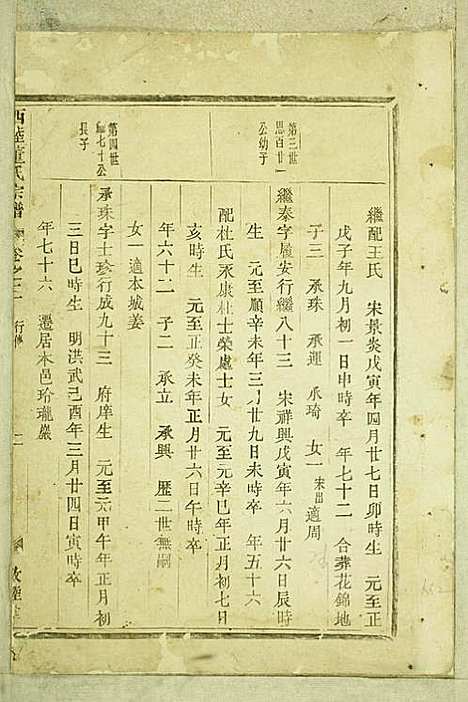 繼配王氏　宋景炎戊寅年四月廿七日卯時生　元至正
戊子年九月初一日申時卒　年七十二　合葬花錦地
子三　承珠　承運　承琦　女一宋出適周
第三世
思百廿一
公幼子
繼泰字履安行繼八十三　宋祥興戊寅年六月廿六日辰時
生　元至順辛未年三月廿九日未時卒　年五十六
配杜氏永康杜士榮處士女　元至元辛巳年正月初七日
亥時生　元至正癸未年正月廿六日午時卒
年六十二　子二　承立　承興　歷二世無嗣
女一適本城姜
第四世
七十公
長子
承珠字士珍行成九十三　府庠生　元至元甲午年正月初
三日巳時生　明洪武己酉年三月廿四日寅時卒
年七十六　遷居本邑玲瓏巖
西陸董氏宗譜　卷之二　行傳